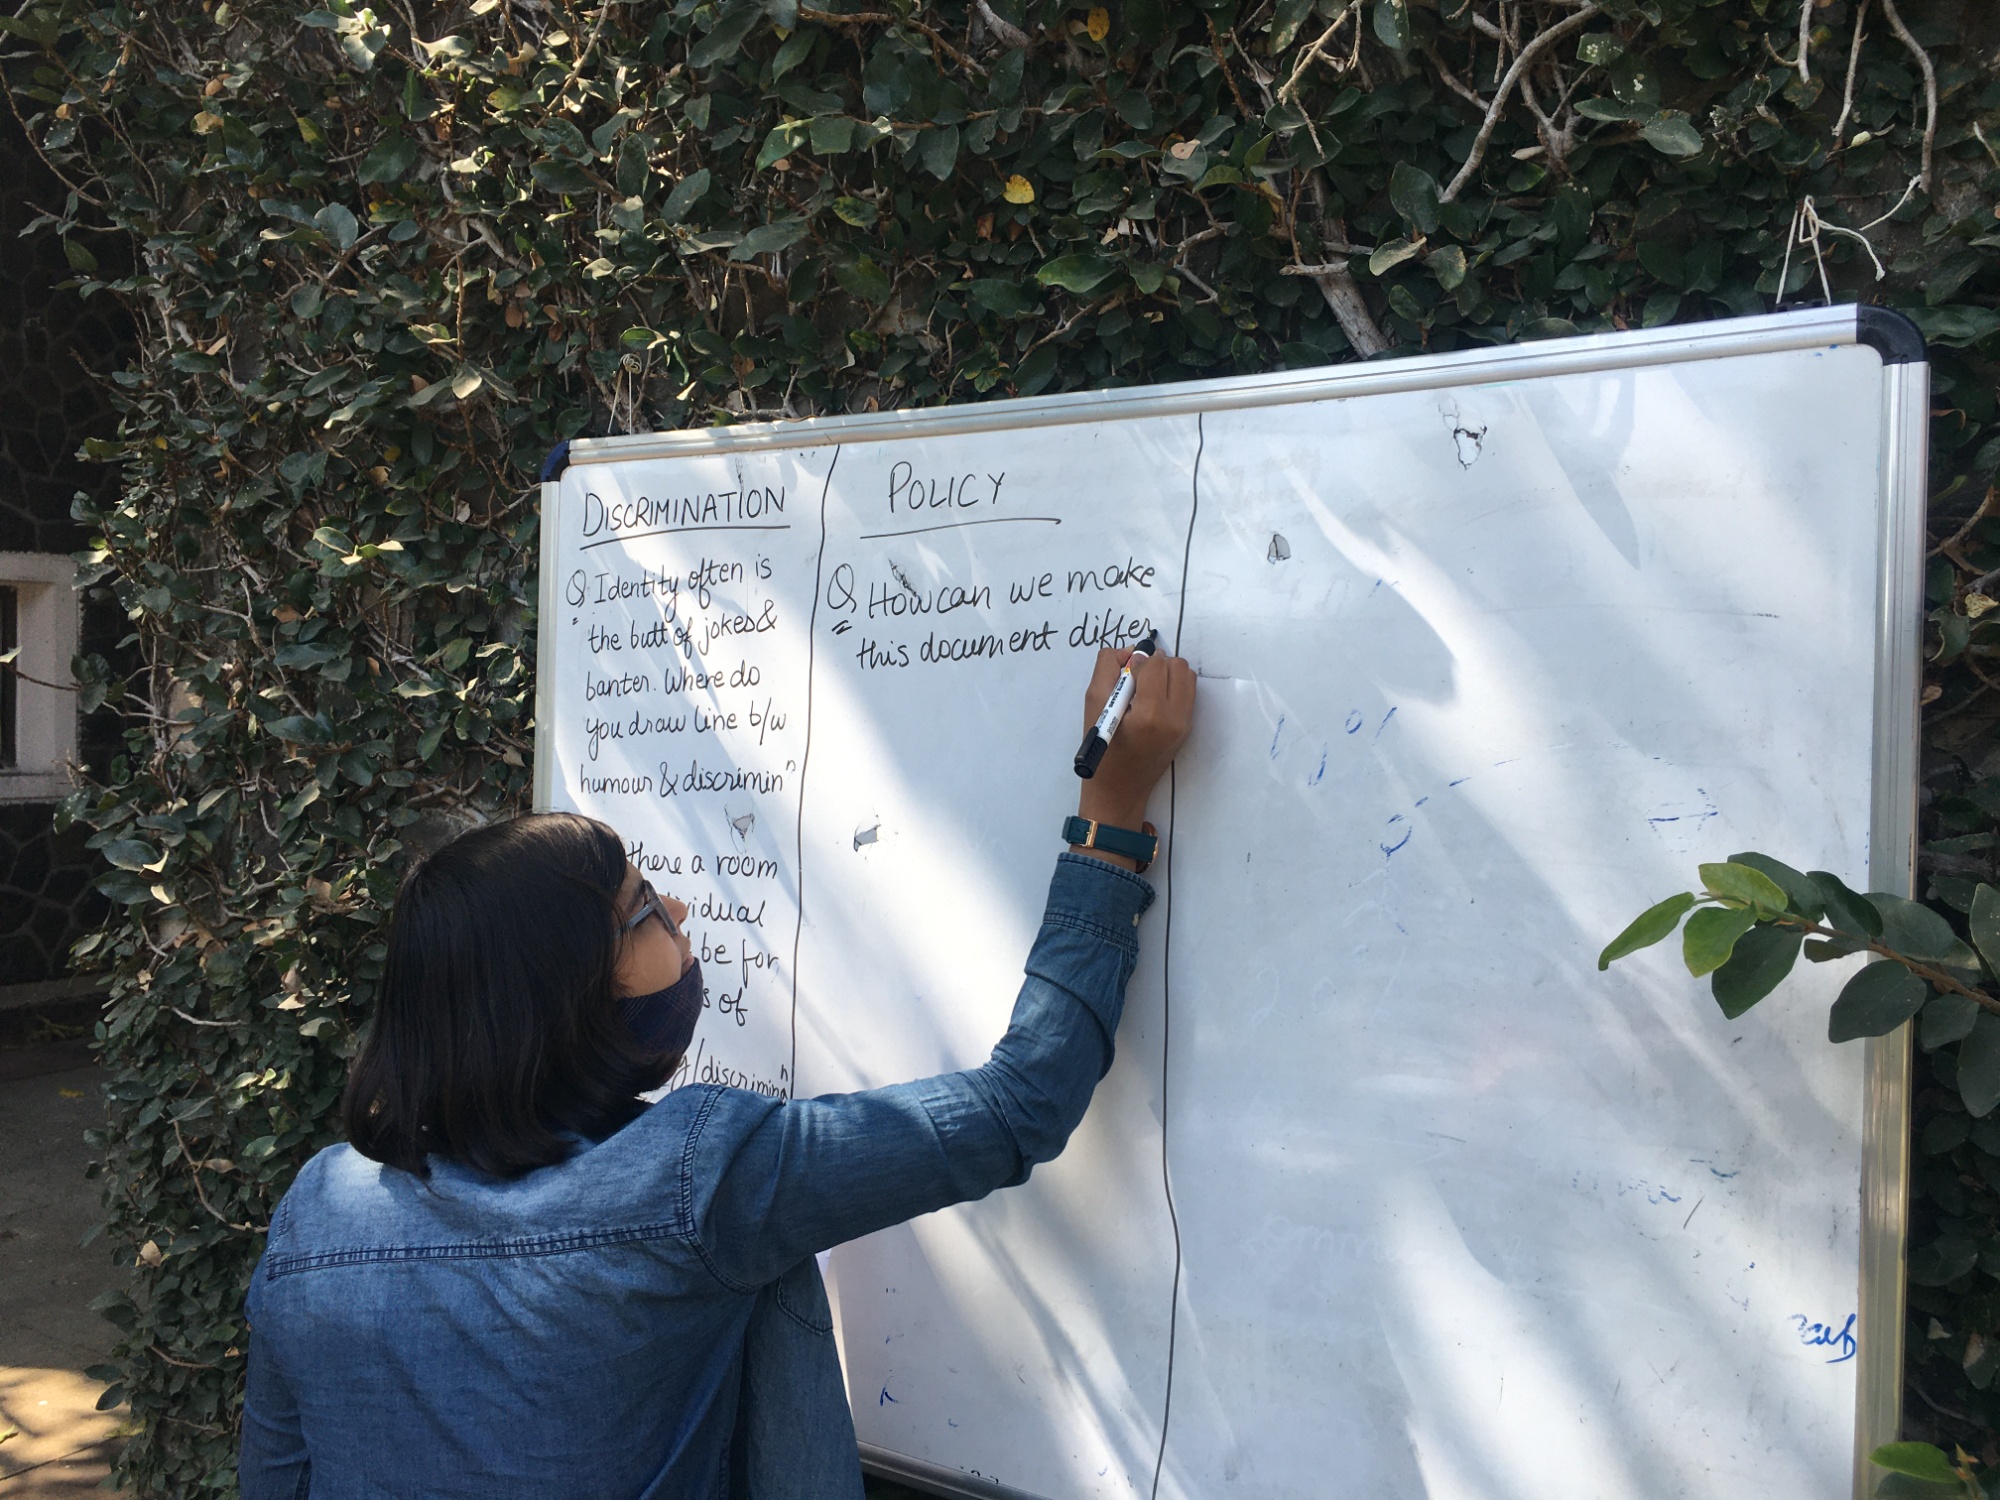 DISCRIMINATION
Q Identity often is
the butt of jokes &
banter. Where do
you draw line b/w
humour & discriminⁿ
there a room
be for
of
/discriminaⁿ
POLICY
Q How can we make
this document differ